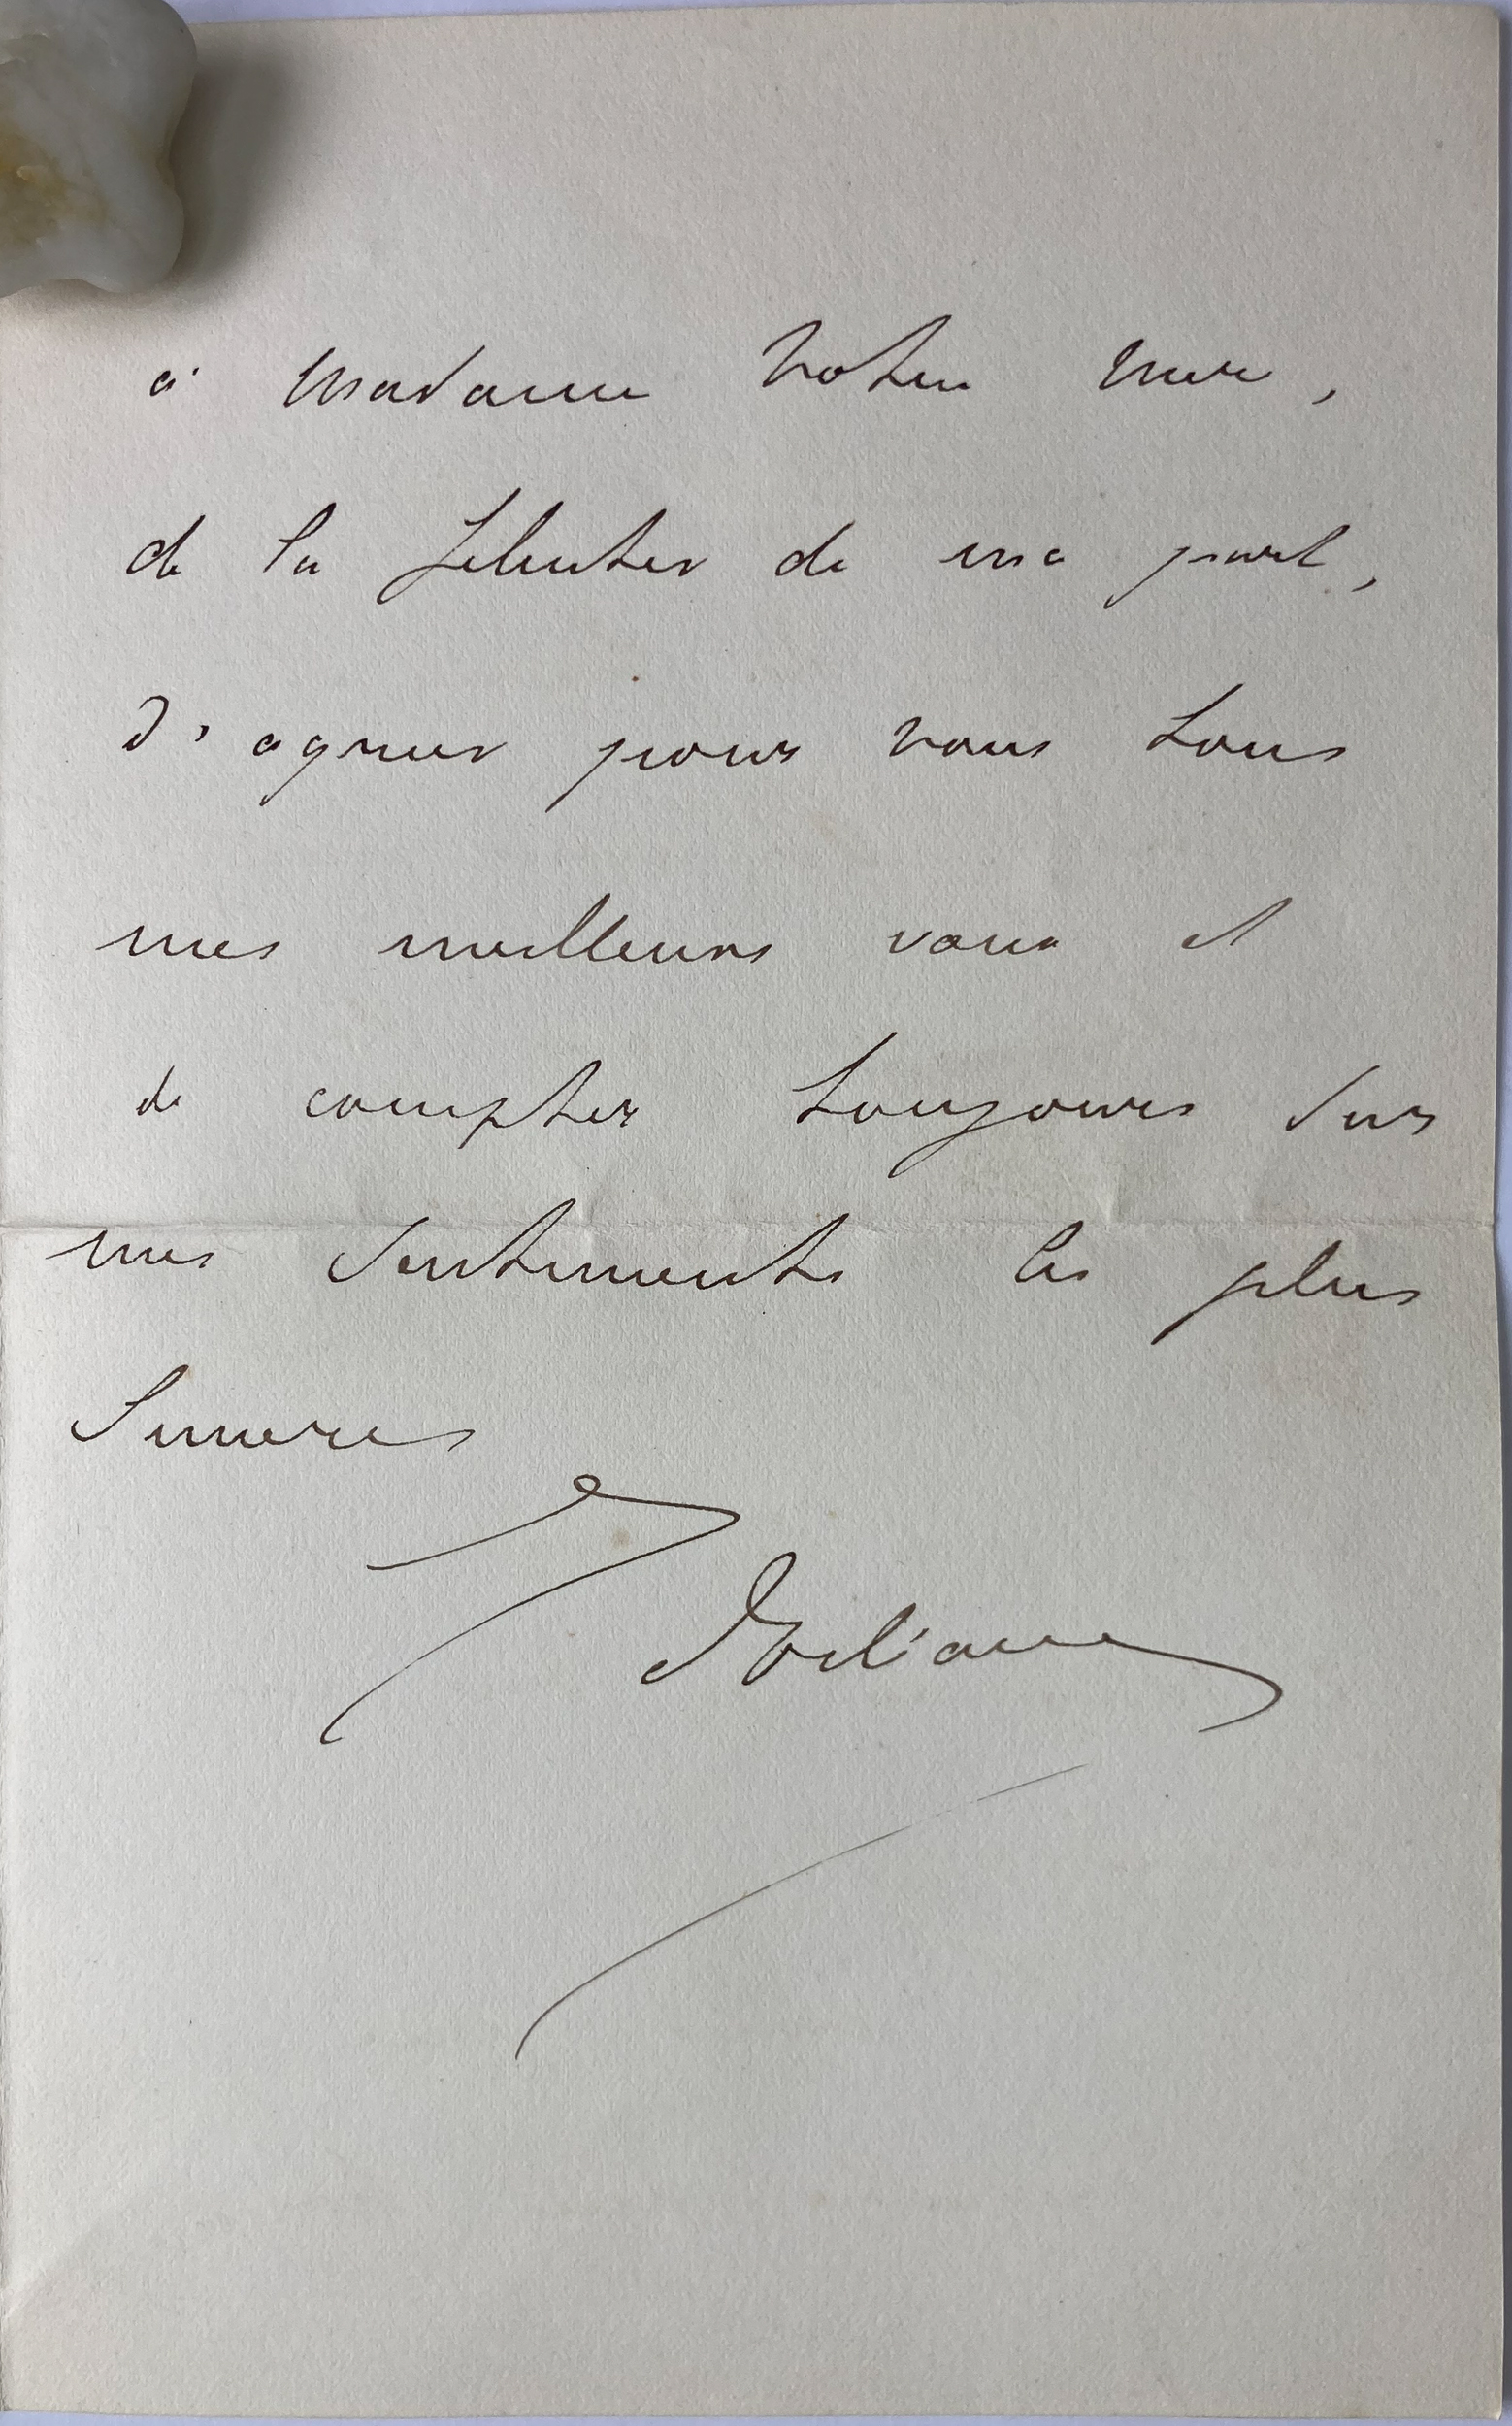 à Madame votre mère,
de la féliciter de ma part,
d'agréer pour vous tous
mes meilleurs vœux et
de compter toujours sur
mes sentiments les plus
sincères